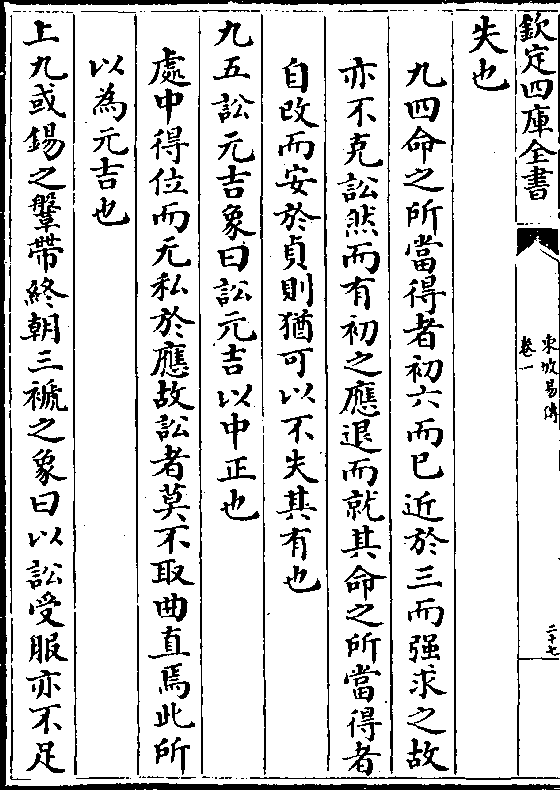 欽定四庫全書
東坡易傳
卷一
二十七
失也
九四命之所當得者初六而已近於三而强求之故
亦不克訟然而有初之應退而就其命之所當得者
自改而安於貞則猶可以不失其有也
九五訟元吉象曰訟元吉以中正也
處中得位而无私於應故訟者莫不取曲直焉此所
以為元吉也
上九或錫之鞶帶終朝三褫之象曰以訟受服亦不足